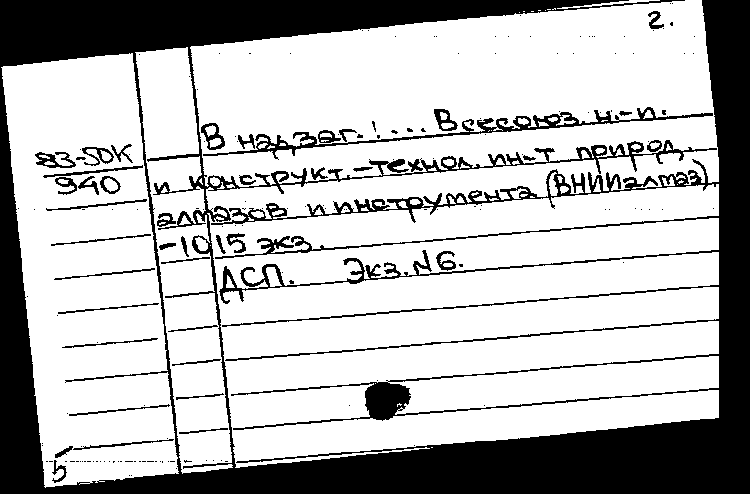 2.
В надзаг.: ... Всесоюз. н.-и.
83-50К
940
и конструкт.-технол. ин-т природ.
алмазов и инструмента (ВНИИалмаз).
-1015 экз.
ДСП. Экз. №6.
5